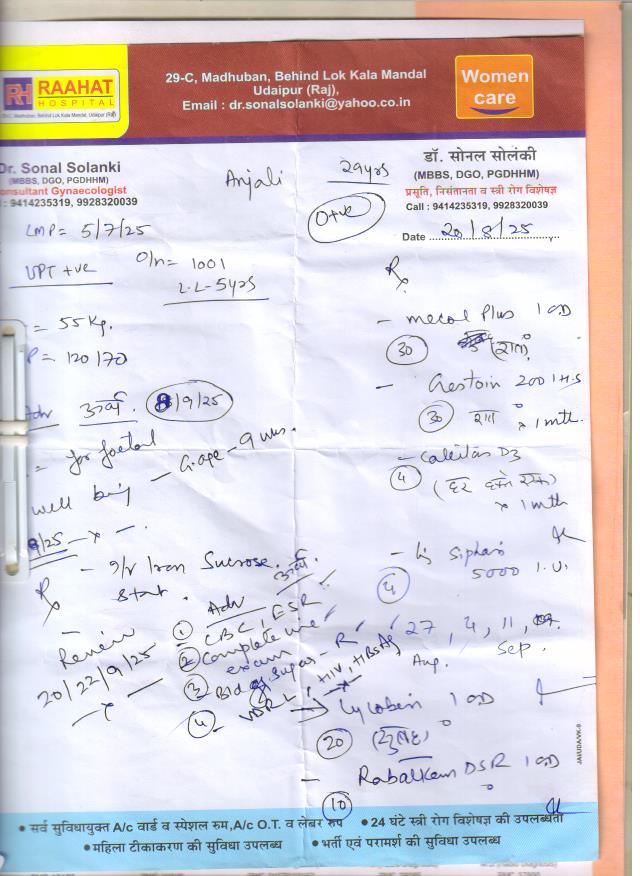 RH RAAHAT
HOSPITAL
29-C, Madhuban, Behind Lok Kala Mandal, Udaipur (Raj)
29-C, Madhuban, Behind Lok Kala Mandal
Udaipur (Raj),
Email : dr.sonalsolanki@yahoo.co.in
Women
care
Dr. Sonal Solanki
(MBBS, DGO, PGDHHM)
Consultant Gynaecologist
: 9414235319, 9928320039
Anjali 29yrs
O+ve
डॉ. सोनल सोलंकी
(MBBS, DGO, PGDHHM)
प्रसूति, निसंतानता व स्त्री रोग विशेषज्ञ
Call : 9414235319, 9928320039
Date 20/8/25
LMP = 5/7/25
UPT +ve O/H = 1001
L.L - 5yrs
= 55 Kg.
P = 120/70
Adv 8/9/25
for foetal
well being - G.age - 9 wks.
/25
Rx - Iron Sucrose.
Stat.
Review
20/22/9/25
Adv
① CBC, ESR
② Complete
exam
③ Bld Sugar - R
④ VDRL, HIV, HBsAg
Rx
- Plus 1 OD
30 (रात)
- Gestoin 200 1 H.S
30 रात x 1 mth.
- D3
4 (हर रात)
x 1 mth
- 5000 I.U.
4
27, 4, 11,
Aug. Sep.
- Lycoben 1 OD
20 (सुबह)
- DSR 1 OD
10
JAI/UDA/VK-9
• सर्व सुविधायुक्त A/c वार्ड व स्पेशल रुम, A/c O.T. व लेबर रुम • 24 घंटे स्त्री रोग विशेषज्ञ की उपलब्धता
• महिला टीकाकरण की सुविधा उपलब्ध • भर्ती एवं परामर्श की सुविधा उपलब्ध